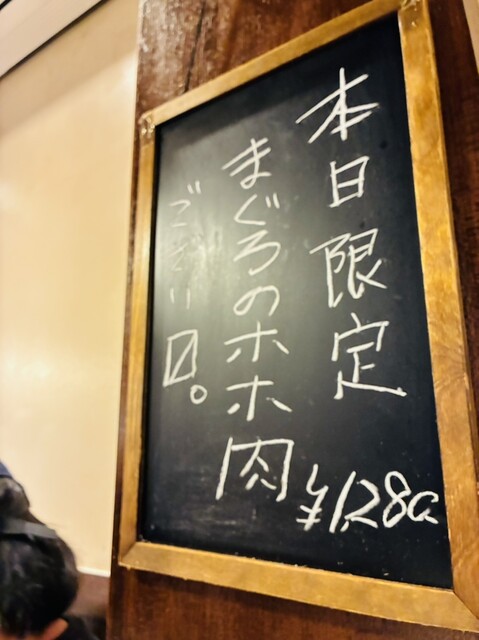 本日限定
まぐろのホホ肉
¥1,280
ござい〼。